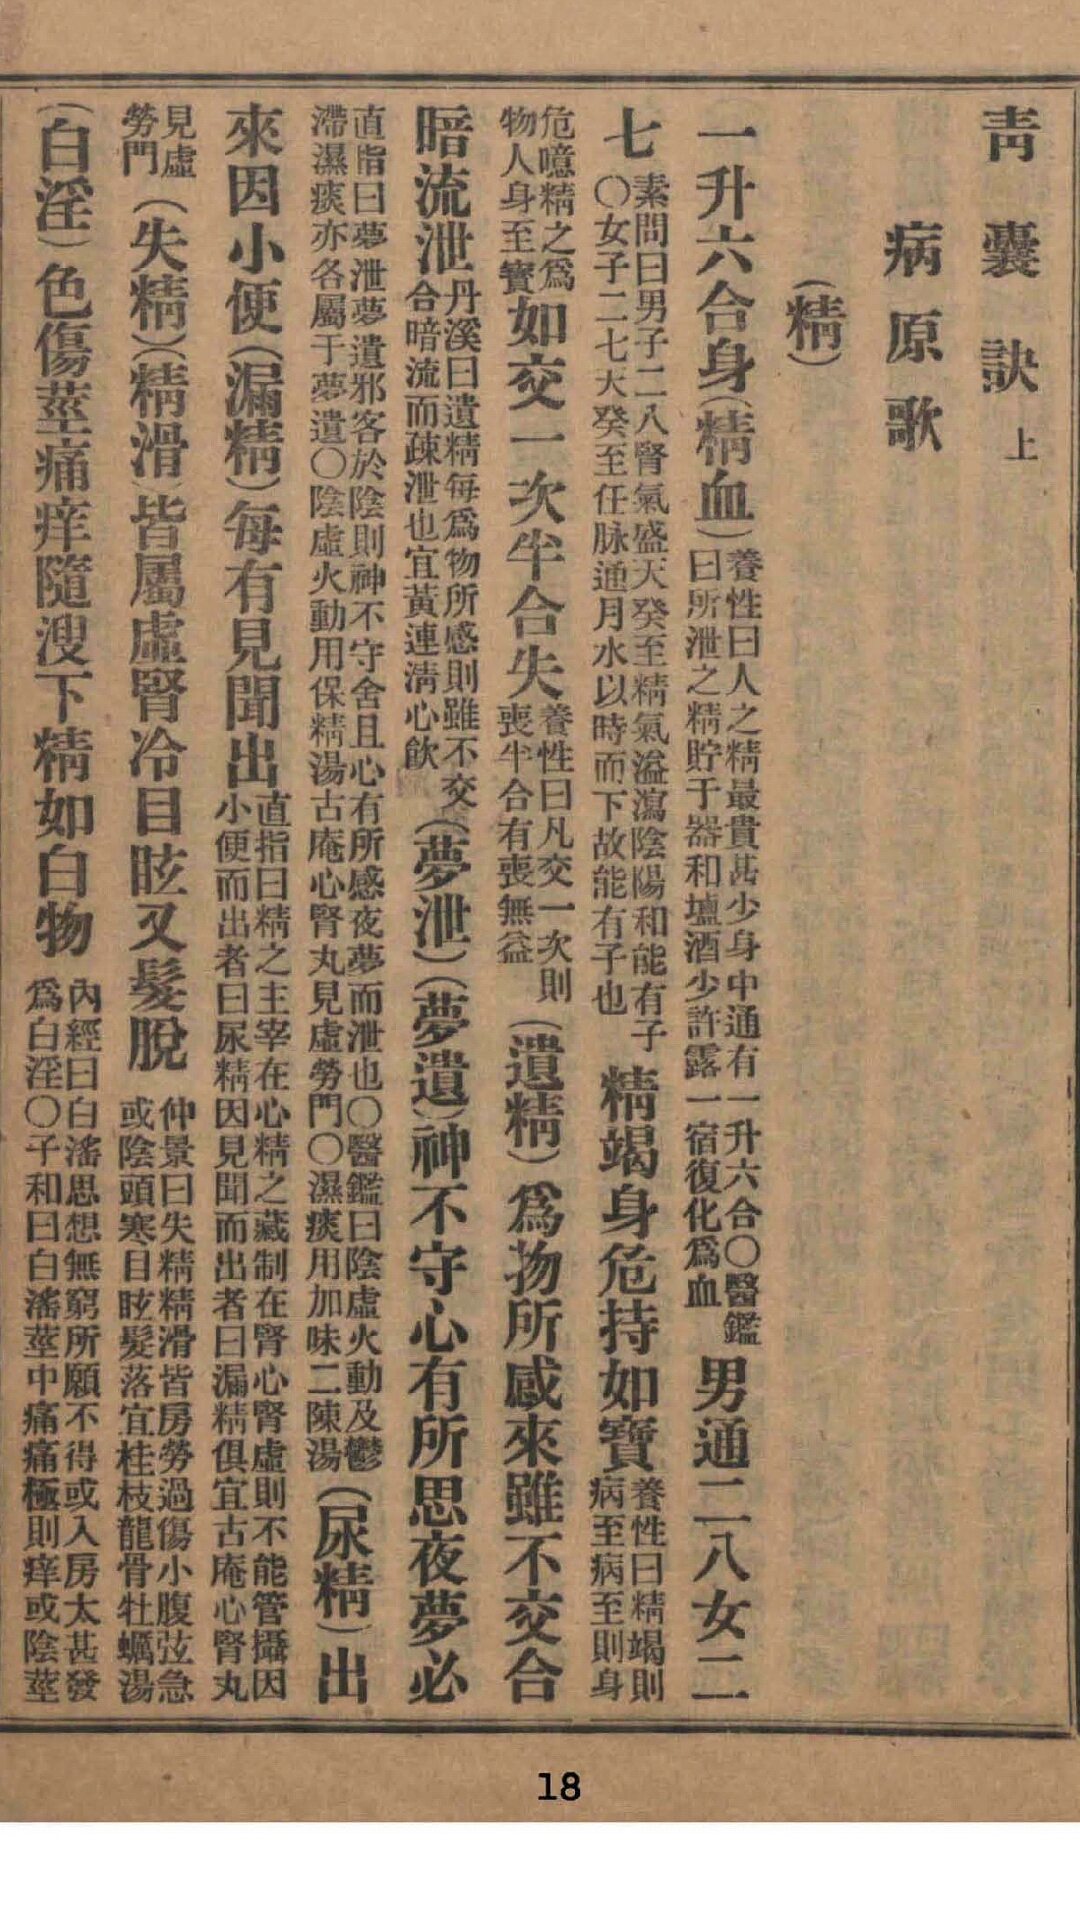 靑囊訣上
病原歌
（精）
一升六合身（精血）養性曰人之精最貴甚少身中通有一升六合〇醫鑑曰所泄之精貯于器和壚酒少許露一宿復化爲血男通二八女二
七素問曰男子二八腎氣盛天癸至精氣溢瀉陰陽和能有子〇女子二七天癸至任脉通月水以時而下故能有子也精竭身危持如寶養性曰精竭則病至病至則身
危噫精之爲物人身至寶如交一次半合失養性曰凡交一次則喪半合有喪無益（遺精）爲物所感來雖不交合
暗流泄丹溪曰遺精每爲物所感則雖不交合暗流而疎泄也宜黃連淸心飮（夢泄）（夢遺）神不守心有所思夜夢必
直指曰夢泄夢遺邪客於陰則神不守舍且心有所感夜夢而泄也〇醫鑑曰陰虛火動及鬱滯濕痰亦各屬于夢遺〇陰虛火動用保精湯古庵心腎丸見虛勞門〇濕痰用加味二陳湯（尿精）出
來因小便（漏精）每有見聞出直指曰精之主宰在心精之藏制在腎心腎虛則不能管攝因小便而出者曰尿精因見聞而出者曰漏精俱宜古庵心腎丸
見虛勞門（失精）（精滑）皆屬虛腎冷目眩又髮脫仲景曰失精精滑皆房勞過傷小腹弦急或陰頭寒目眩髮落宜桂枝龍骨牡蠣湯
（白淫）色傷莖痛痒隨溲下精如白物內經曰白淫思想無窮所願不得或入房太甚發爲白淫〇子和曰白淫莖中痛痛極則痒或陰莖
18